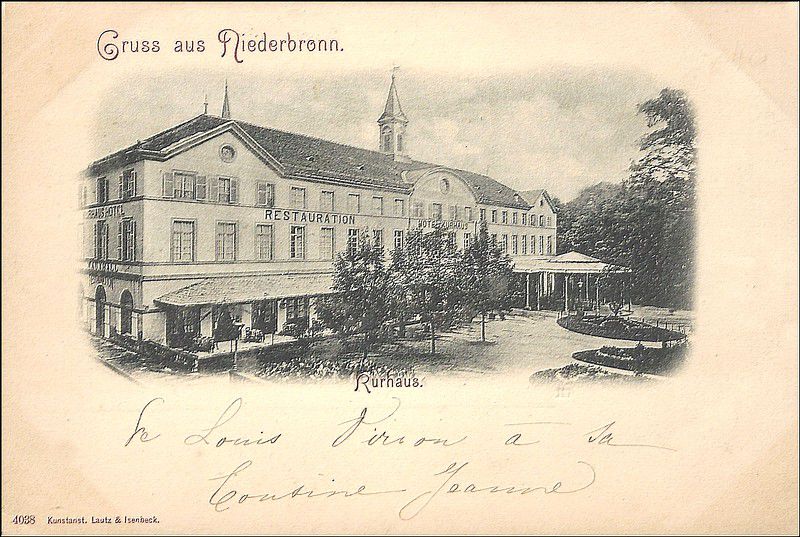 Gruss aus Niederbronn.
KURHAUS-HOTEL
RESTAURATION
HOTEL KURHAUS
Kurhaus.
Louis Virion à sa
Cousine Jeanne
4038 Kunstanst. Lautz & Isenbeck.